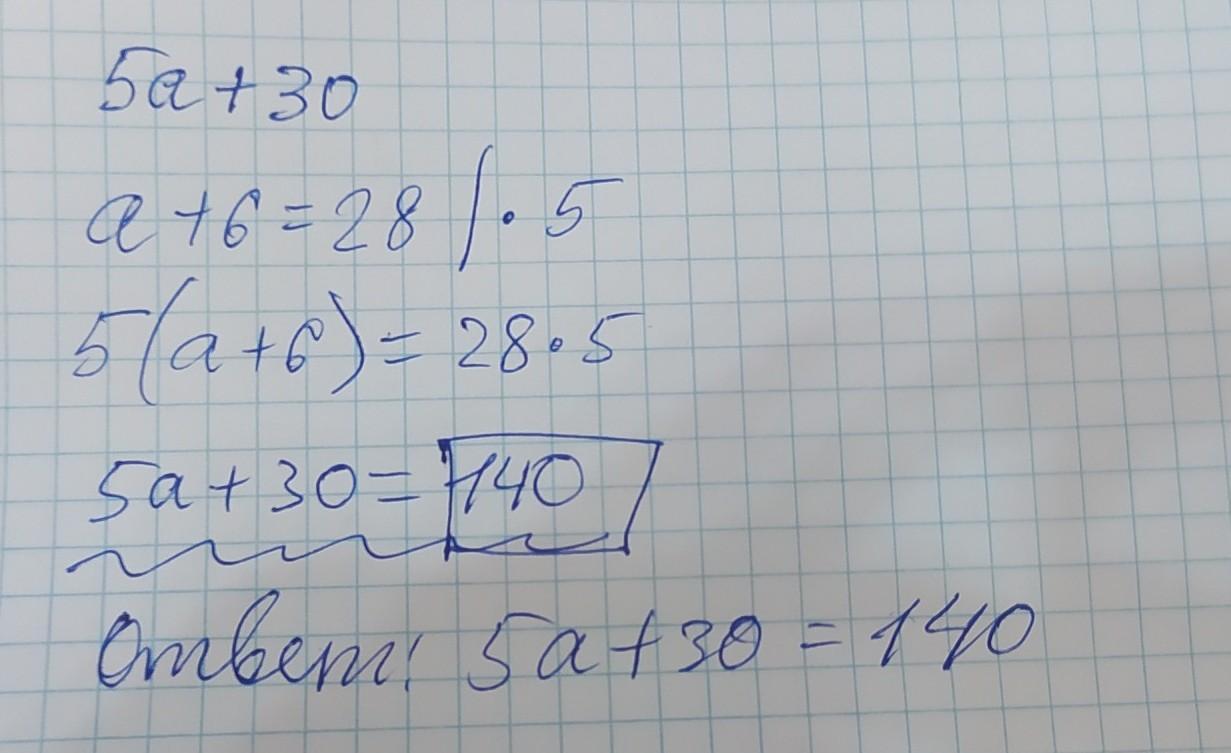 5a+30
a+6=28 /· 5
5(a+6)= 28·5
5a+30= 140
Ответ: 5a+30 = 140